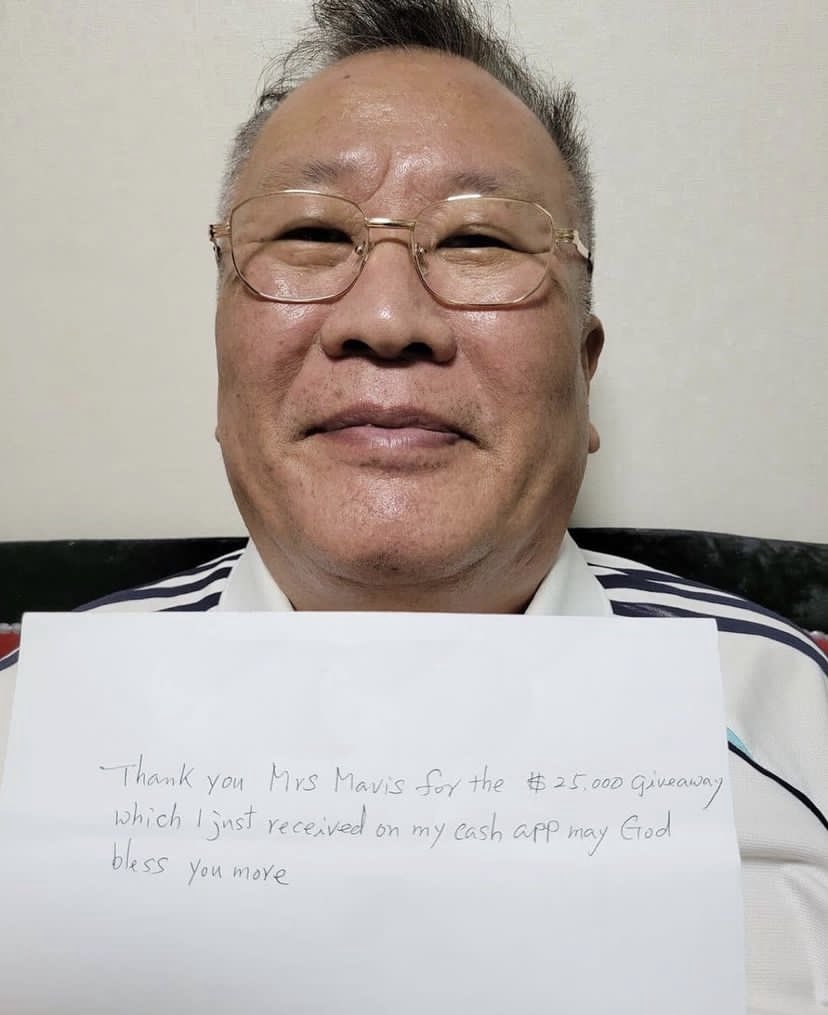 Thank you Mrs Mavis for the $25.000 giveaway
which I just received on my cash app may God
bless you more